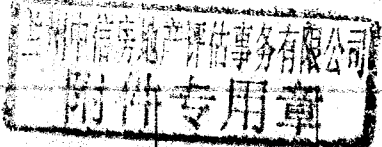 兰州中信房地产评估事务有限公司
附件专用章